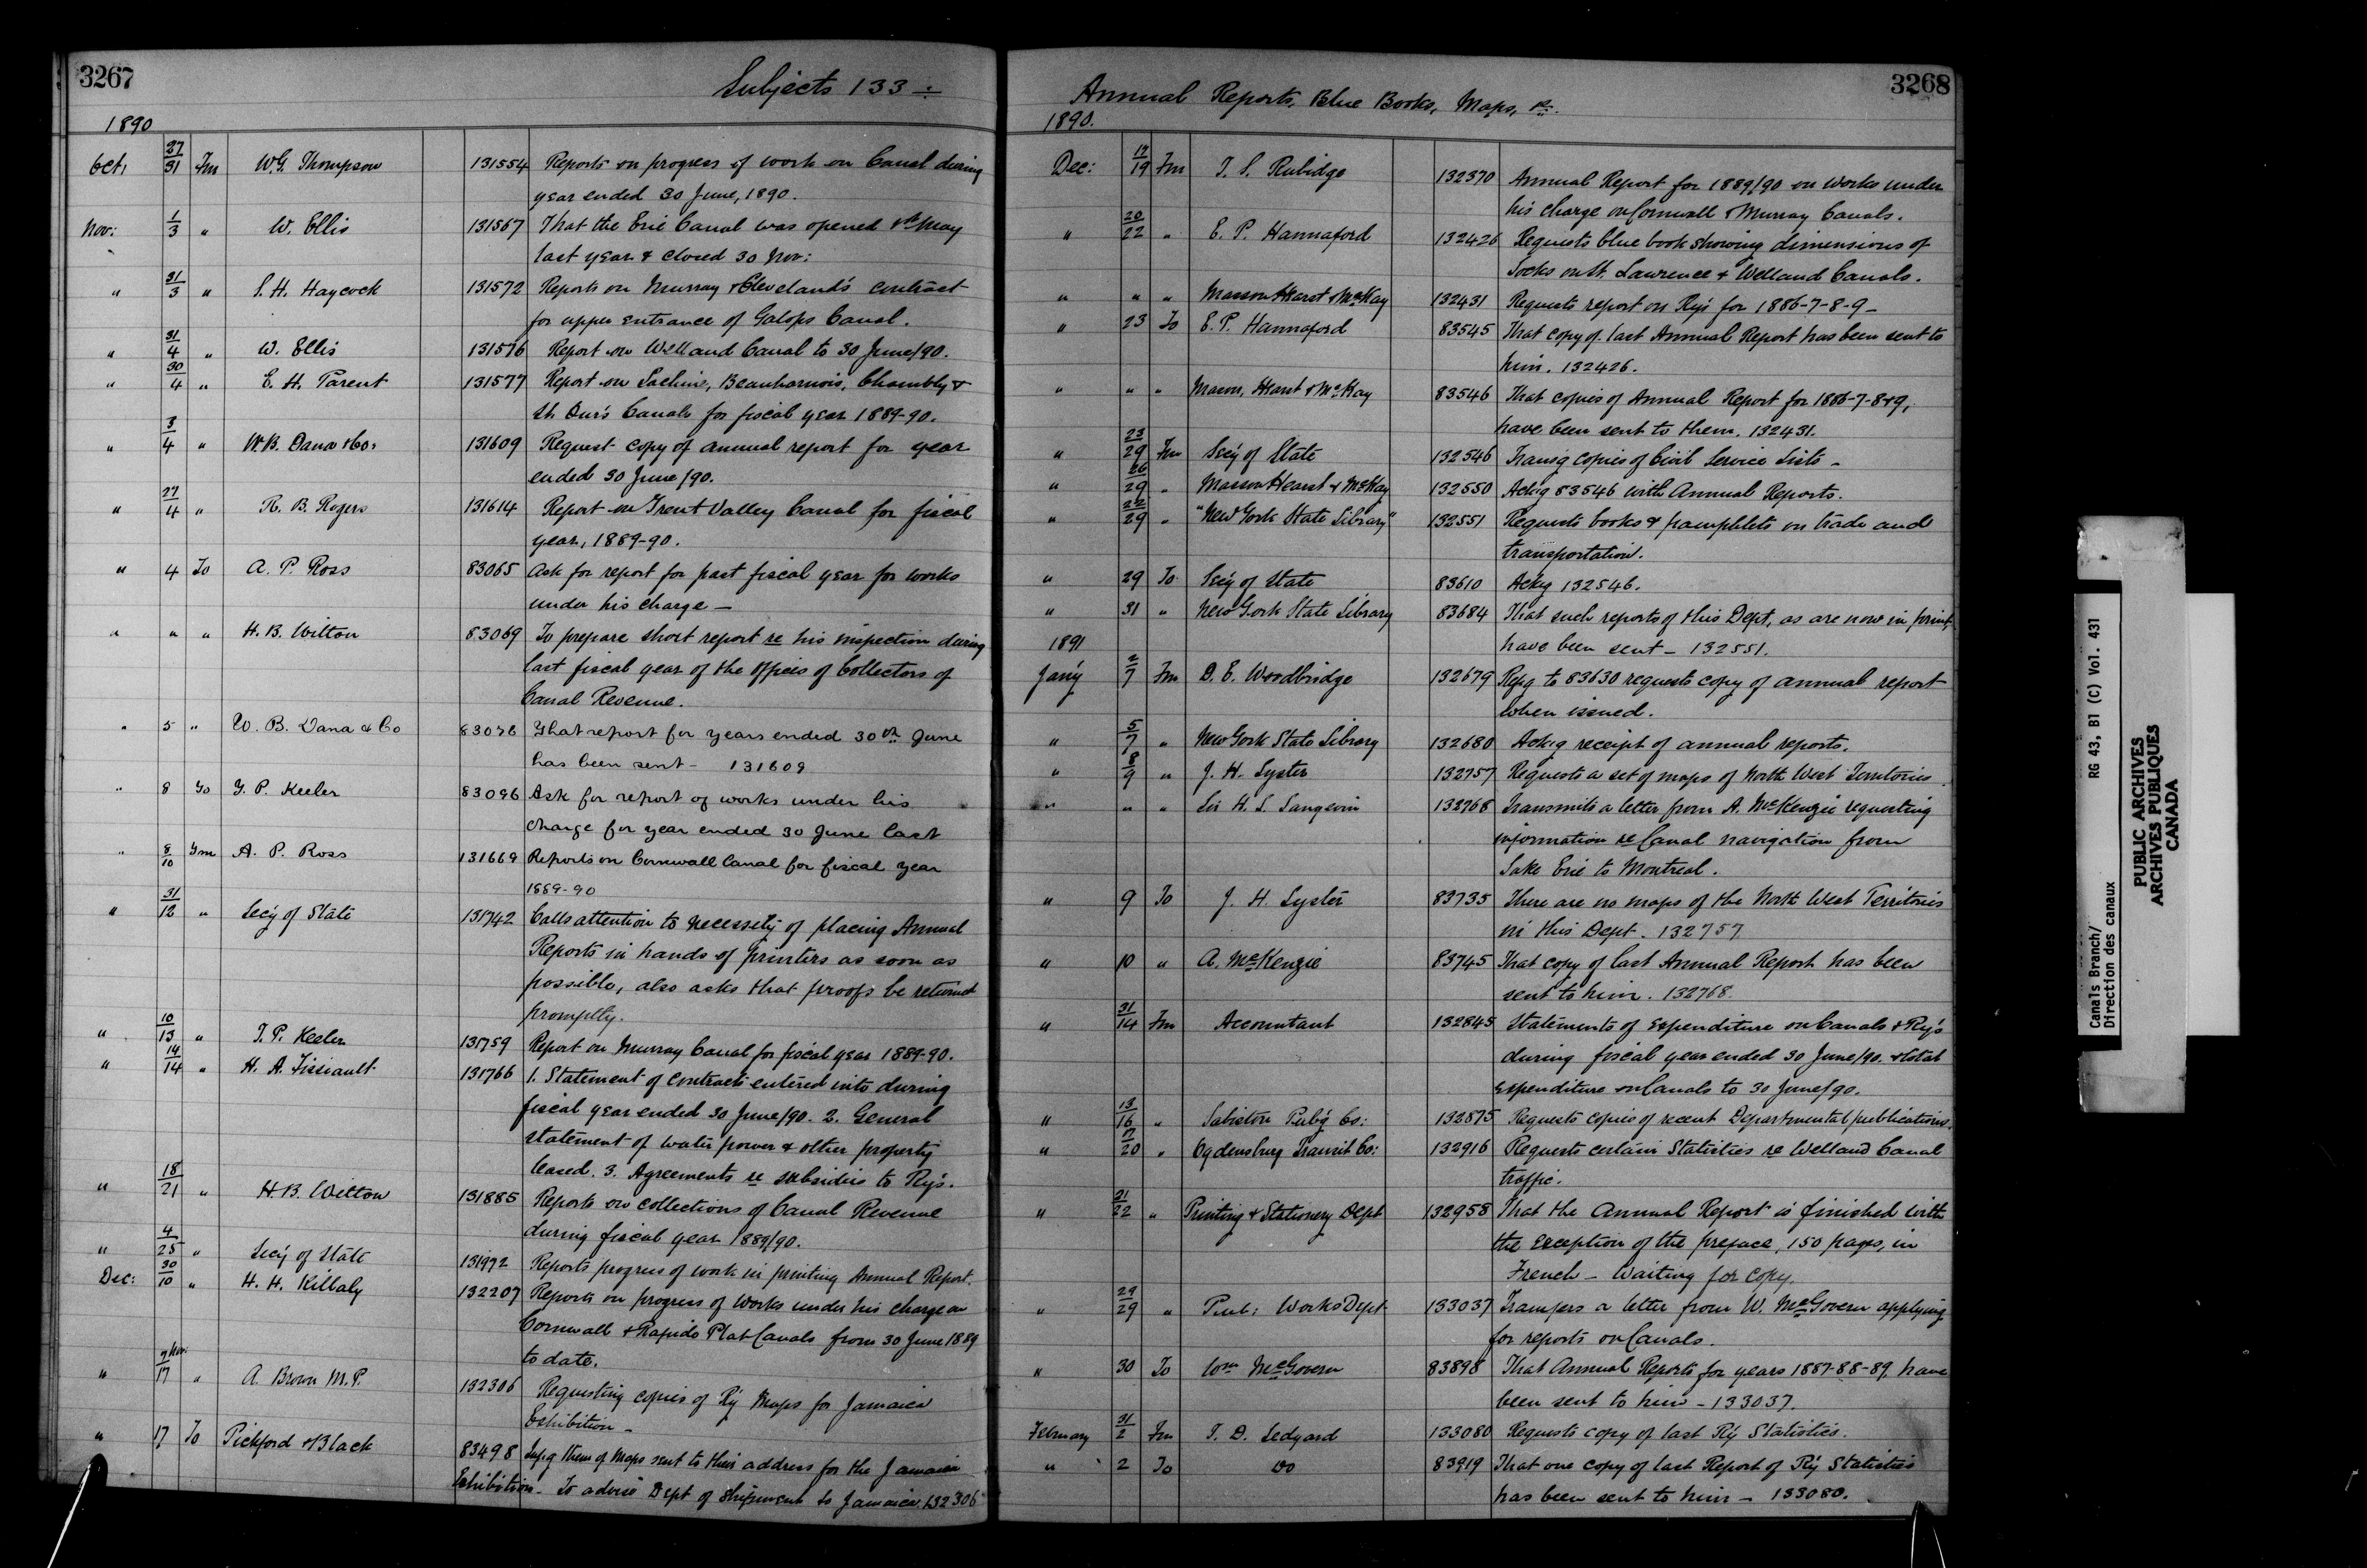 3267
Subjects 133 -
1890
Oct, 27/31 Fm W.G. Thompson 131554 Reports on progress of work on Canal during
year ended 30 June, 1890.
Nov: 1/3 " W. Ellis 131567 That the Erie Canal was opened May
last year & closed 30 Nov:
" 31/3 " S. H. Haycock 131572 Reports on Murray & Cleveland's contract
for upper entrance of Galops Canal.
" 31/4 " W. Ellis 131576 Report on Welland Canal to 30 June/90.
" 30/4 " E. H. Parent 131577 Report on Lachine, Beauharnois, Chambly &
St. Our's Canals for fiscal year 1889-90.
" 3/4 " W.B. Dana & Co. 131609 Request copy of annual report for year
ended 30 June/90.
" 27/4 " R. B. Rogers 131614 Report on Trent Valley Canal for fiscal
year, 1889-90.
" 4 To A. P. Ross 83065 Ask for report for past fiscal year for works
under his charge —
" " " H. B. Witton 83069 To prepare short report re his inspection during
last fiscal year of the offices of Collectors of
Canal Revenue.
" 5 " W. B. Dana & Co 83076 That report for years ended 30th June
has been sent - 131609
" 8 To T. P. Keeler 83096 Ask for report of works under his
charge for year ended 30 June last
" 8/10 Fm A. P. Ross 131669 Reports on Cornwall Canal for fiscal year
1889-90
" 31/12 " Sec'y of State 131742 Calls attention to necessity of placing Annual
Reports in hands of printers as soon as
possible, also asks that proofs be returned
promptly.
" 10/13 " T. P. Keeler 131759 Report on Murray Canal for fiscal year 1889-90.
" 14/14 " H. A. Fissiault 131766 1. Statement of Contracts entered into during
fiscal year ended 30 June/90. 2. General
statement of water power & other property
leased. 3. Agreements re subsidies to Ry's.
" 18/21 " H.B. Witton 131885 Reports on collections of Canal Revenue
during fiscal year 1889/90.
" 4/25 " Sec'y of State 131972 Reports progress of work in printing Annual Report.
Dec: 30/10 " H. H. Killaly 132207 Reports on progress of works under his charge on
Cornwall & Rapide Plat Canals from 30 June 1889
to date.
" 7 Nov./17 " A. Brown M.P. 132306 Requesting copies of Ry Maps for Jamaica
Exhibition -
" 17 To Pickford & Black 83498 them of Maps sent to their address for the Jamaica
Exhibition. To advise Dept of shipment to Jamaica. 132306
3268
Annual Reports, Blue Books, Maps, &c.
1890.
Dec: 17/19 Fm T. S. Rubidge 132370 Annual Report for 1889/90 on works under
his charge on Cornwall & Murray Canals.
" 20/22 " E. P. Hannaford 132426 Requests blue book showing dimensions of
Locks on St. Lawrence & Welland Canals.
" " " Masson Hearst & McKay 132431 Requests report on Ry's for 1886-7-8-9 -
" 23 To E. P. Hannaford 83545 That copy of last Annual Report has been sent to
him. 132426.
" " " Masson, Hearst & McKay 83546 That copies of Annual Report for 1886-7-8&9,
have been sent to them. 132431.
" 23/29 Fm Sec'y of State 132546 Transg copies of Civil Service Lists -
" 26/29 " Masson Hearst & McKay 132550 Ackg 83546 with Annual Reports.
" 22/29 " "New York State Library" 132551 Requests books & pamphlets on trade and
transportation.
" 29 To Sec'y of State 83610 Ackg 132546.
" 31 " New York State Library 83684 That such reports of this Dept, as are now in print,
have been sent - 132551.
1891
Jan'y 2/7 Fm D. E. Woodbridge 132679 Repg to 83630 requests copy of annual report
when issued.
" 5/7 " New York State Library 132680 Ackg receipt of annual reports.
" 8/9 " J. H. Lyster 132757 Requests a set of maps of North West Territories
" " " Sir H. L. Langevin 132768 Transmits a letter from A. McKenzie requesting
information re Canal navigation from
Lake Erie to Montreal.
" 9 To J. H. Lyster 83735 There are no maps of the North West Territories
in this Dept. 132757
" 10 " A. McKenzie 83745 That copy of last Annual Report has been
sent to him. 132768.
" 31/14 Fm Accountant 132845 Statements of Expenditure on Canals & Ry's
during fiscal year ended 30 June/90. & total
expenditure on Canals to 30 June/90.
" 13/16 " Sabiston Pub'g Co: 132875 Requests copies of recent Departmental publications.
" 17/20 " Ogdensburg Transit Co: 132916 Requests certain Statistics re Welland Canal
traffic.
" 21/22 " Printing & Stationery Dept 132958 That the Annual Report is finished with
the exception of the preface, 150 pages, in
French - Waiting for copy.
" 29/29 " Pub: Works Dept 133037 Transfers a letter from W. McGovern applying
for reports on Canals.
" 30 To Wm McGovern 83898 That Annual Reports for years 1887-88-89, have
been sent to him - 133037.
February 31/2 Fm T. D. Ledyard 133080 Requests copy of last Ry Statistics.
" 2 To do 83919 That one copy of last Report of Ry Statistics
has been sent to him - 133080.
Canals Branch/ RG 43, B1 (C) Vol. 431
Direction des canaux
PUBLIC ARCHIVES
ARCHIVES PUBLIQUES
CANADA